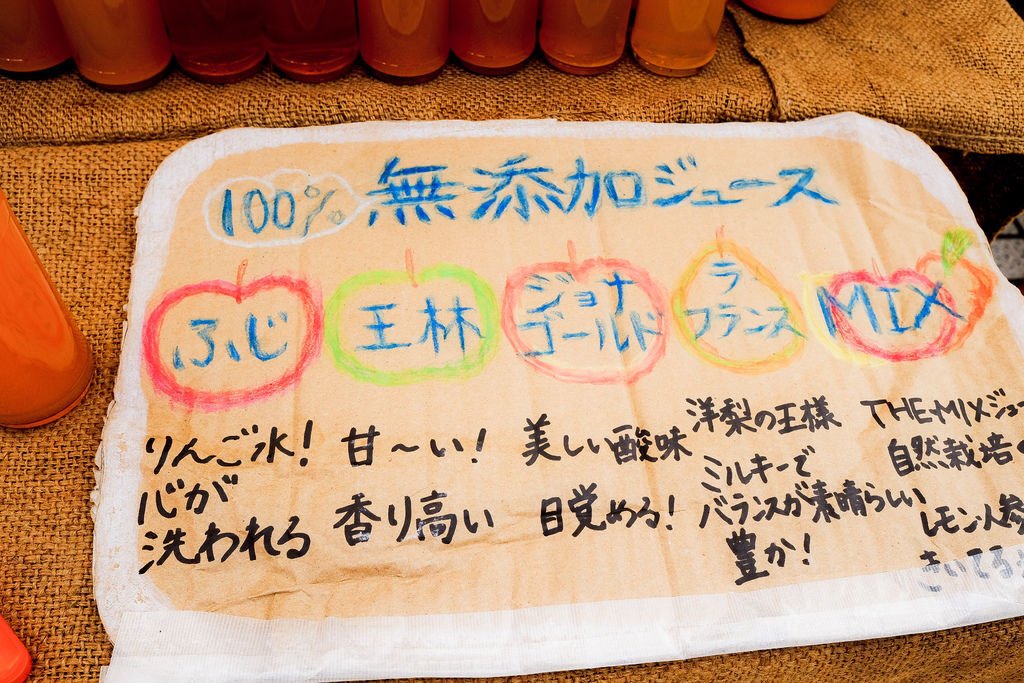 100% 無添加ジュース
ふじ
王林
ジョナ
ゴールド
ラ
フランス
MIX
りんご水!
心が
洗われる
甘〜い!
香り高い
美しい酸味
目覚める!
洋梨の王様
ミルキーで
バランスが素晴らしい
豊か!
THE・MIXジュー
自然栽培の
レモン、人参
きいてる